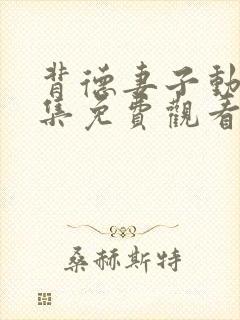 背德妻子動
集免費觀看
桑赫斯特